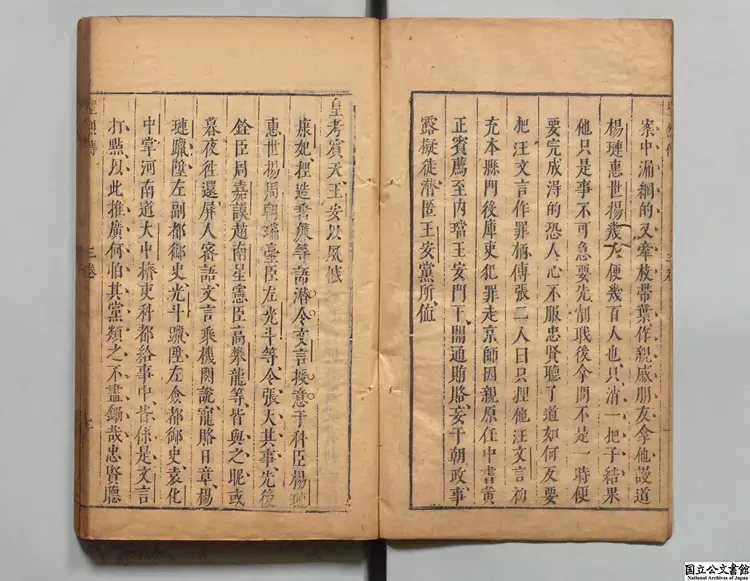 案中漏網的又牽枝帶葉作親戚朋友拿他謾道
楊漣惠世揚幾人便幾百人也只消一把子結果
他只是事不可急要先削職後拿問不是一時便
要完成得的恐人心不服忠賢聽了道如何反要
把汪文言作罪柄傅張二人曰只捏他汪文言初
充本縣門後庫吏犯罪走京師因親原任中書黃
正賓薦至內璫王安門下關通賄賂妄干朝政事
露擬徒潛匿王安黨所值
皇考賓天王安以風憾
康妃捏造垂簾等語潛令文言授意于科臣楊漣
惠世揚周朝瑞臺臣左光斗等令張大其事先後
銓臣周嘉謨趙南星憲臣高攀龍等皆與之眤或
暮夜徃還屏人密語文言乘機関說寵賂日章楊
漣躐陞左副都御史光斗躐陞左僉都御史袁化
中掌河南道大中擠吏科都給事中皆係是文言
打㸃以此推廣何怕其黨類之不盡鋤哉忠賢聽
三卷
国立公文書館
National Archives of Japan